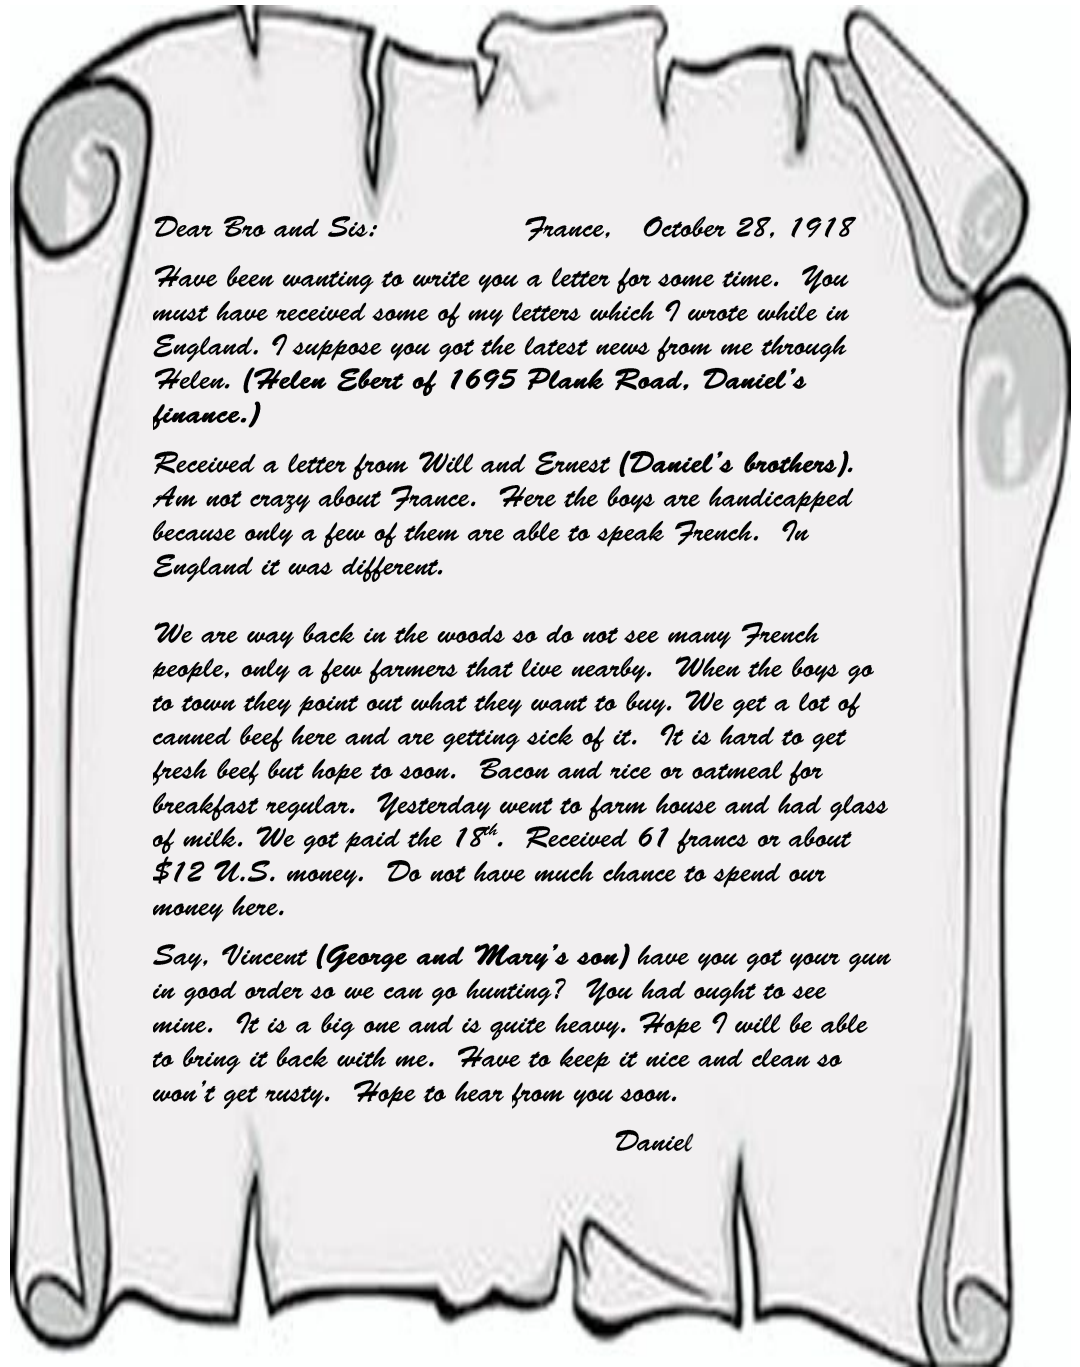 Dear Bro and Sis: France, October 28, 1918
Have been wanting to write you a letter for some time. You
must have received some of my letters which I wrote while in
England. I suppose you got the latest news from me through
Helen. (Helen Ebert of 1695 Plank Road, Daniel's
finance.)
Received a letter from Will and Ernest (Daniel's brothers).
Am not crazy about France. Here the boys are handicapped
because only a few of them are able to speak French. In
England it was different.
We are way back in the woods so do not see many French
people, only a few farmers that live nearby. When the boys go
to town they point out what they want to buy. We get a lot of
canned beef here and are getting sick of it. It is hard to get
fresh beef but hope to soon. Bacon and rice or oatmeal for
breakfast regular. Yesterday went to farm house and had glass
of milk. We got paid the 18th. Received 61 francs or about
$12 U.S. money. Do not have much chance to spend our
money here.
Say, Vincent (George and Mary's son) have you got your gun
in good order so we can go hunting? You had ought to see
mine. It is a big one and is quite heavy. Hope I will be able
to bring it back with me. Have to keep it nice and clean so
won't get rusty. Hope to hear from you soon.
Daniel